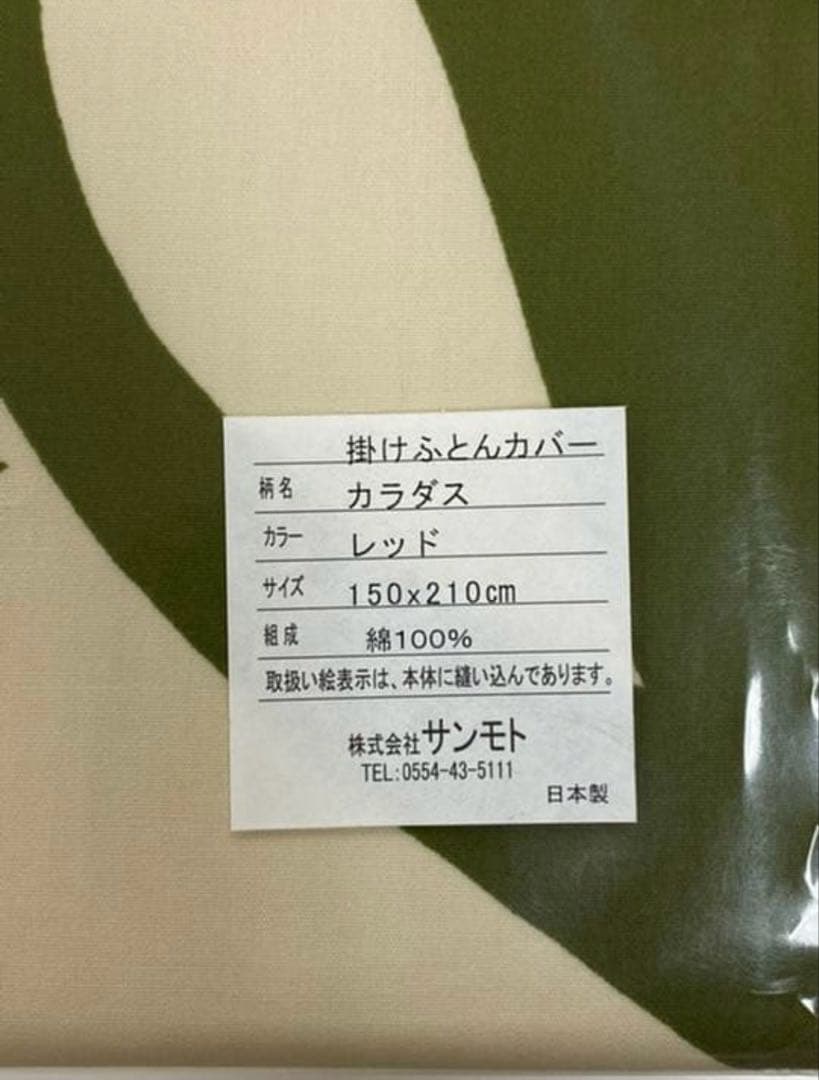 掛けふとんカバー
柄名 カラダス
カラー レッド
サイズ 150x210cm
組成 綿100%
取扱い絵表示は、本体に縫い込んであります。
株式会社サンモト
TEL:0554-43-5111
日本製